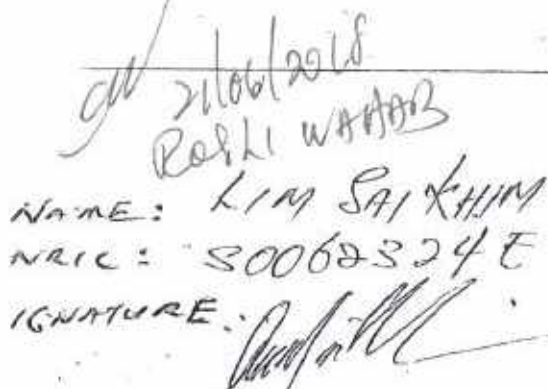 21/06/2018
ROSLI WAHAB
NAME: LIM SAI KHIM
NRIC: S0062324E
IGNATURE: